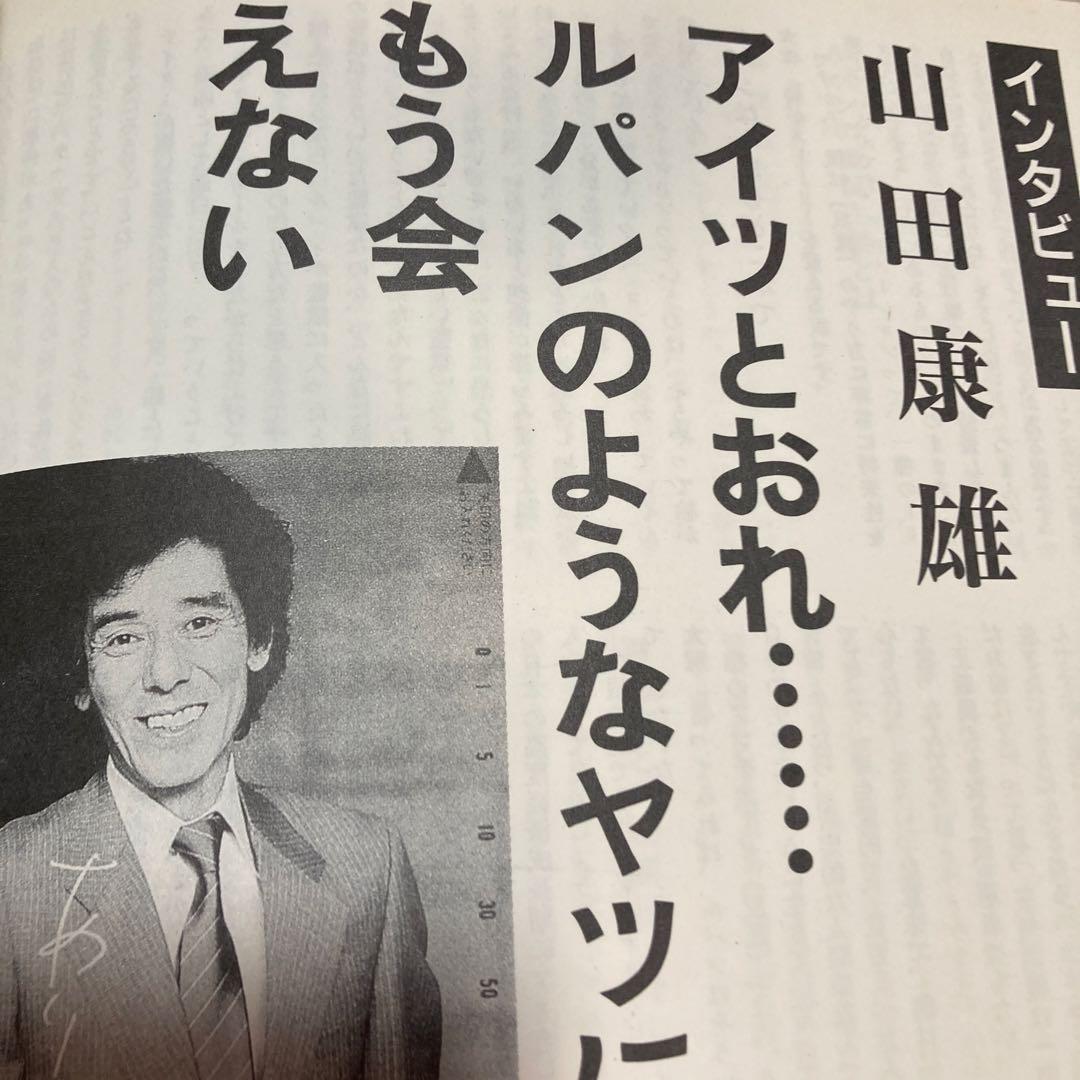 インタビュー
山田康雄
アイツとおれ……
ルパンのようなヤツに
もう会
えない
0
1
5
10
30
50